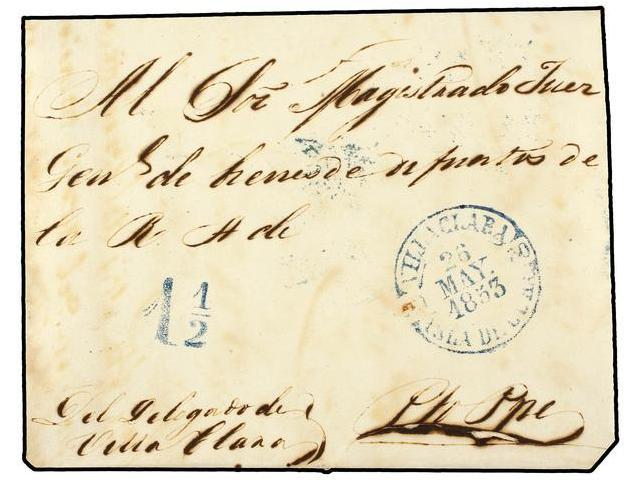 Al Sor. Magistrado Juez
Genl. de bienes de difuntos de
la R. A de
VILLACLARA
26
MAY.
1853
ISLA DE CUBA
1 1/2
Del Delegado de
Villa Clara
Pto Ppe